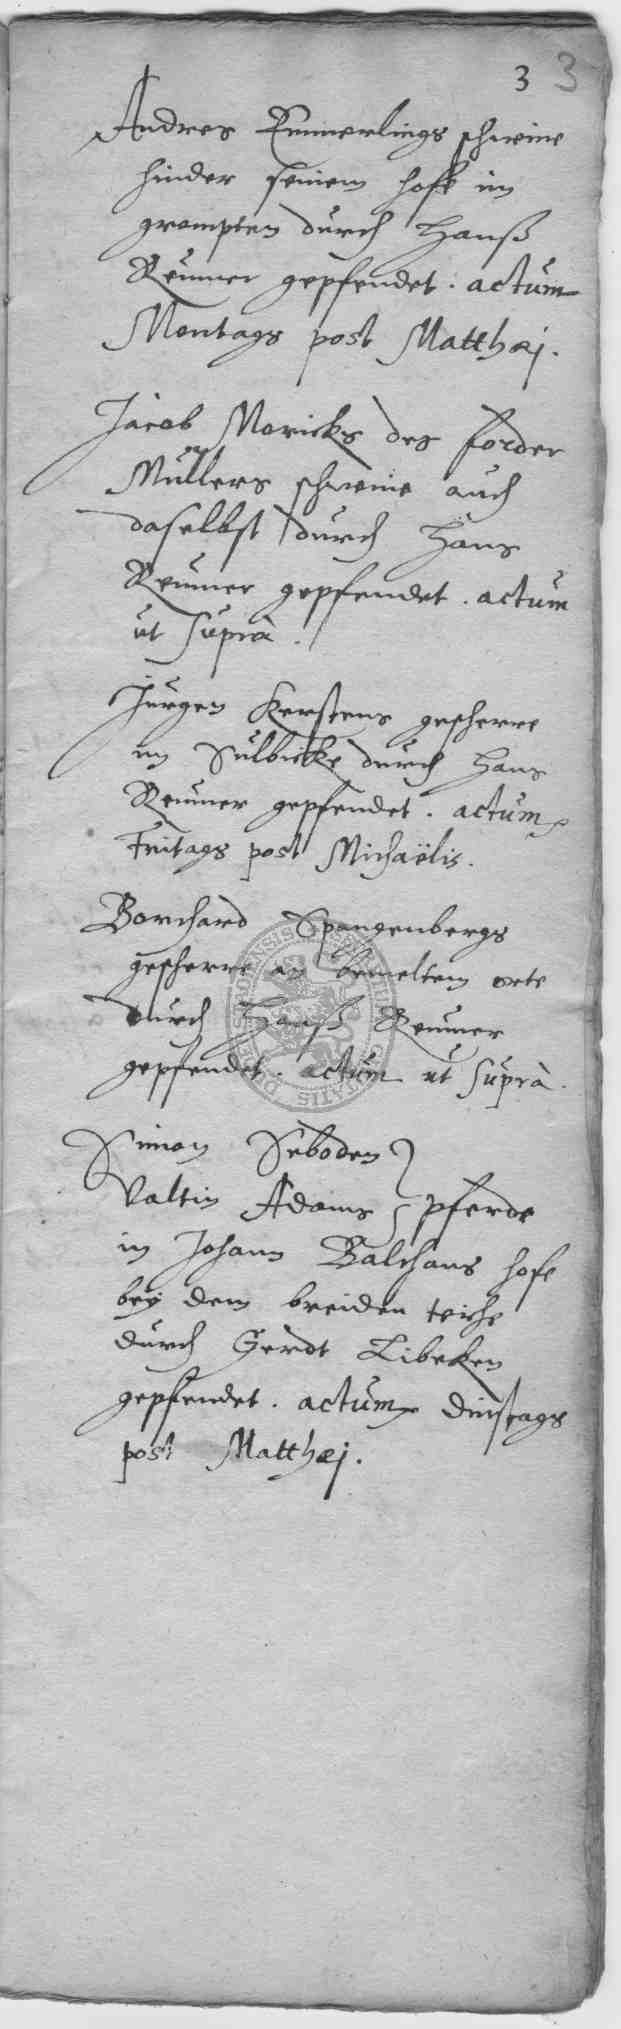 3 3
Andres Emmerlings schweine
hinder seinem hofe im
grempten durch Hanß
Reumer gepfendet. actum
Montags post Matthæj.
Jacob Moricks des forder
Müllers schweine auch
daselbst durch Hans
Reumer gepfendet. actum
ut Suprà.
Jürgen Kerstens gescherre
im Sülbicke durch Hans
Reumer gepfendet. actum
Fritags post Michaëlis.
Borchard Spangenbergs
gescherre an bemeltem orte
durch Hanß Reumer
gepfendet. actum ut Suprà.
Simon Seboden
Valtin Adams } pferde
in Johann Balchans hofe
bey dem breiden teiche
durch Gerdt Libeken
gepfendet. actum Dinstags
post Matthæj.